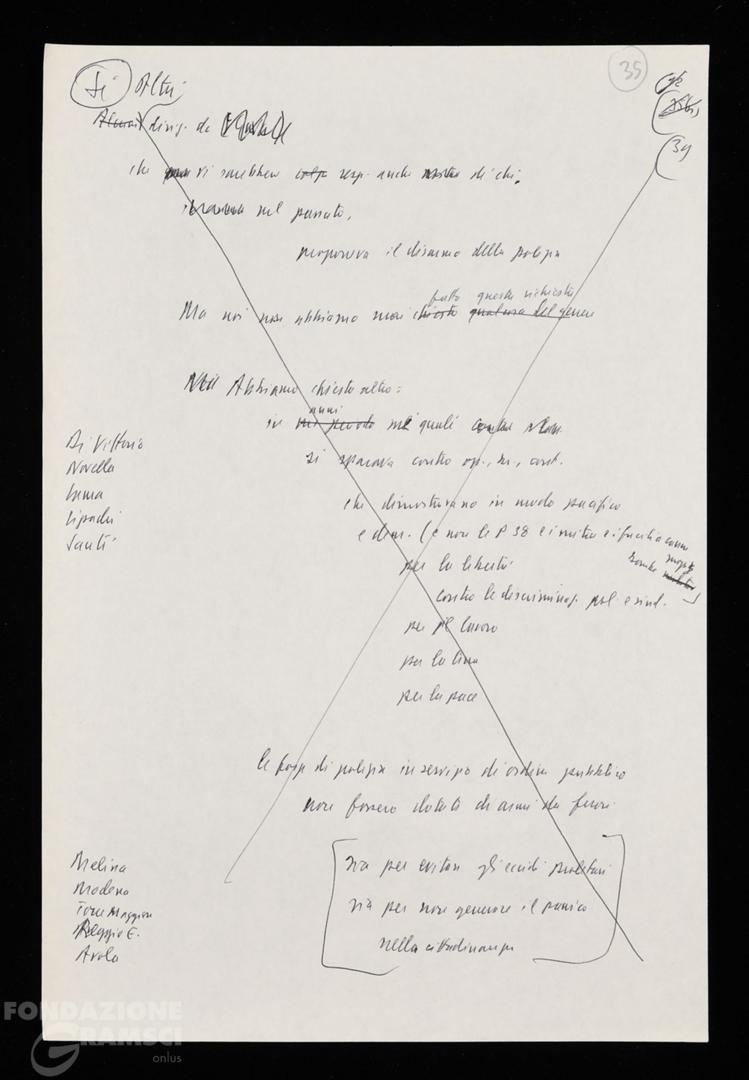 35
Sì Altri
dirig. da
39
che vi sarebbero resp. anche di chi,
nel passato,
proponeva il disarmo della polizia
fatto questa richiesta
Ma noi non abbiamo mai chiesto qualcosa del genere
Noi Abbiamo chiesto altro:
anni
in nei quali
si sparava contro op., st., cont.
Di Vittorio
Novella
Lama
Santi
che dimostravano in modo pacifico
e dem. (e non le P 38 e i mitra e i fucili a canne
mozze
bombe
per la libertà
contro le discriminaz. pol. e sind.
per il lavoro
per la terra
per la pace
le forze di polizia in servizio di ordine pubblico
non fossero dotate di armi da fuoco
Melissa
Modena
Torre Maggiore
Reggio E.
Avola
sia per evitare gli eccidi proletari
sia per non generare il panico
nella cittadinanza
FONDAZIONE
GRAMSCI
onlus